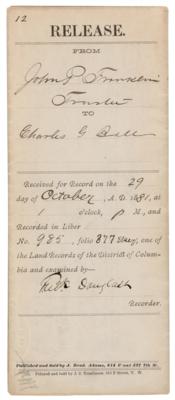 12
RELEASE.
FROM
John P. Franklin
Trustee
TO
Charles G. Ball
Received for Record on the 29
day of October A. D. 1881, at
1 o'clock, P M., and
Recorded in Liber
No. 985, folio 377 et seq., one of
the Land Records of the District of Colum-
bia and examined by
Fredk Douglass
Recorder.
Published and Sold by J. Brad. Adams, 814 F and 527 7th St.
Printed and Sold by